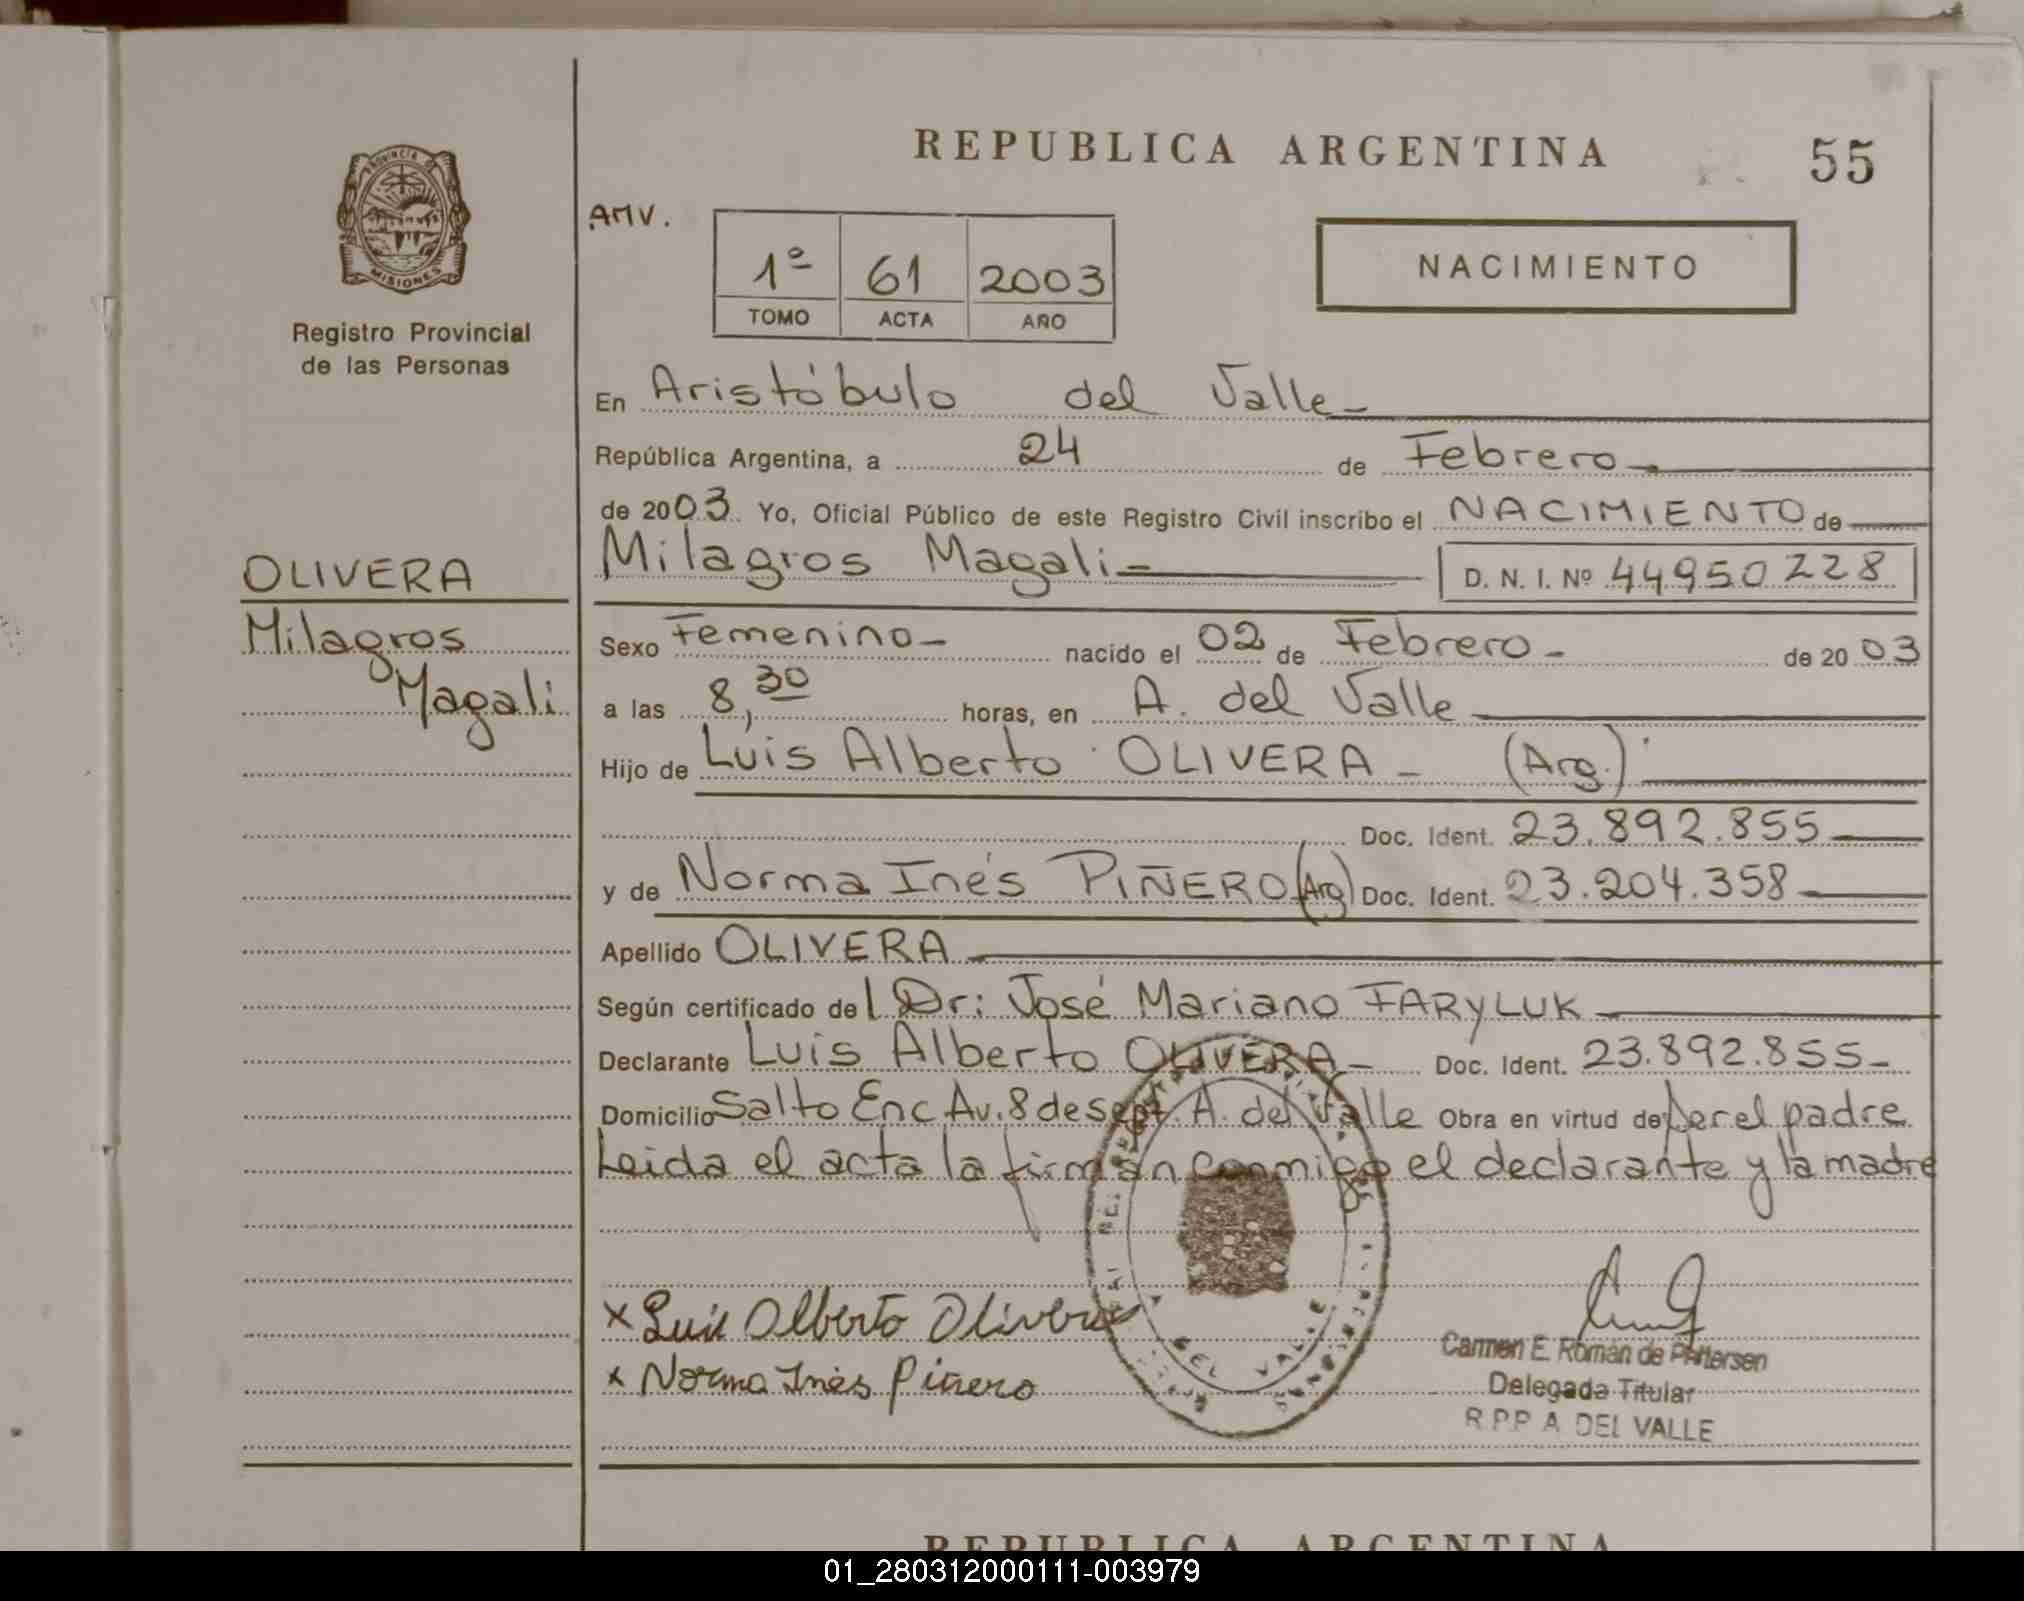 REPUBLICA ARGENTINA
55
PROVINCIA DE
MISIONES
Registro Provincial
de las Personas
AMV.
1º 61 2003
TOMO ACTA AÑO
NACIMIENTO
En Aristóbulo del Valle
República Argentina, a 24 de Febrero
de 2003. Yo, Oficial Público de este Registro Civil inscribo el NACIMIENTO de
OLIVERA
Milagros
Magali
Milagros Magali
D. N. I. Nº 44950228
Sexo Femenino nacido el 02 de Febrero de 2003
a las 8,30 horas, en A. del Valle
Hijo de Luis Alberto OLIVERA (Arg.)
Doc. Ident. 23.892.855
y de Norma Inés PIÑERO (Arg) Doc. Ident. 23.204.358
Apellido OLIVERA
Según certificado del Dr: José Mariano FARYLUK
Declarante Luis Alberto OLIVERA Doc. Ident. 23.892.855
Domicilio Salto Enc Av. 8 de Sept. A. del Valle Obra en virtud de Ser el padre.
Leida el acta la firman conmigo el declarante y la madre
x Luis Alberto Olivera
x Norma Inés Piñero
DEL VALLE
Carmen E. Román de
Delegada Titular
R.P.P A DEL VALLE
REPUBLICA ARGENTINA
01_280312000111-003979